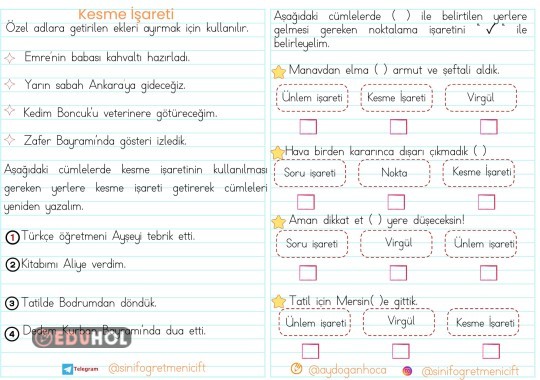 Kesme İşareti
Özel adlara getirilen ekleri ayırmak için kullanılır.
Emre'nin babası kahvaltı hazırladı.
Yarın sabah Ankara'ya gideceğiz.
Kedim Boncuk'u veterinere götüreceğim.
Zafer Bayramı'nda gösteri izledik.
Aşağıdaki cümlelerde kesme işaretinin kullanılması
gereken yerlere kesme işareti getirerek cümleleri
yeniden yazalım.
1 Türkçe öğretmeni Ayşeyi tebrik etti.
2 Kitabımı Aliye verdim.
3 Tatilde Bodrumdan döndük.
4 Dedem Kurban Bayramı'nda dua etti.
EDUHOL
Telegram @sinifogretmenicift
Aşağıdaki cümlelerde ( ) ile belirtilen yerlere
gelmesi gereken noktalama işaretini " ✓ " ile
belirleyelim.
Manavdan elma ( ) armut ve şeftali aldık.
Ünlem işareti Kesme İşareti Virgül
Hava birden kararınca dışarı çıkmadık ( )
Soru işareti Nokta Kesme İşareti
Aman dikkat et ( ) yere düşeceksin!
Soru işareti Virgül Ünlem işareti
Tatil için Mersin( )e gittik.
Ünlem işareti Virgül Kesme İşareti
@aydoganhoca @sinifogretmenicift